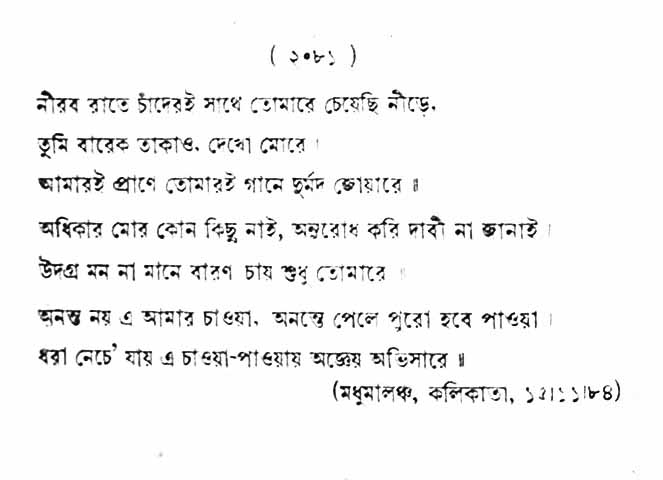 ( ২০৮১ )
নীরব রাতে চাঁদেরই সাথে তোমারে চেয়েছি নীড়ে,
তুমি বারেক তাকাও, দেখো মোরে ।
আমারই প্রাণে তোমারই গানে দুর্মদ জোয়ারে ॥
অধিকার মোর কোন কিছু নাই, অনুরোধ করি দাবী না জানাই ।
উদগ্র মন না মানে বারণ চায় শুধু তোমারে ।
অনন্ত নয় এ আমার চাওয়া, অনন্তে পেলে পুরো হবে পাওয়া ।
ধরা নেচে' যায় এ চাওয়া-পাওয়ায় অজ্ঞেয় অভিসারে ॥
(মধুমালঞ্চ, কলিকাতা, ১৫।১১।৮৪)